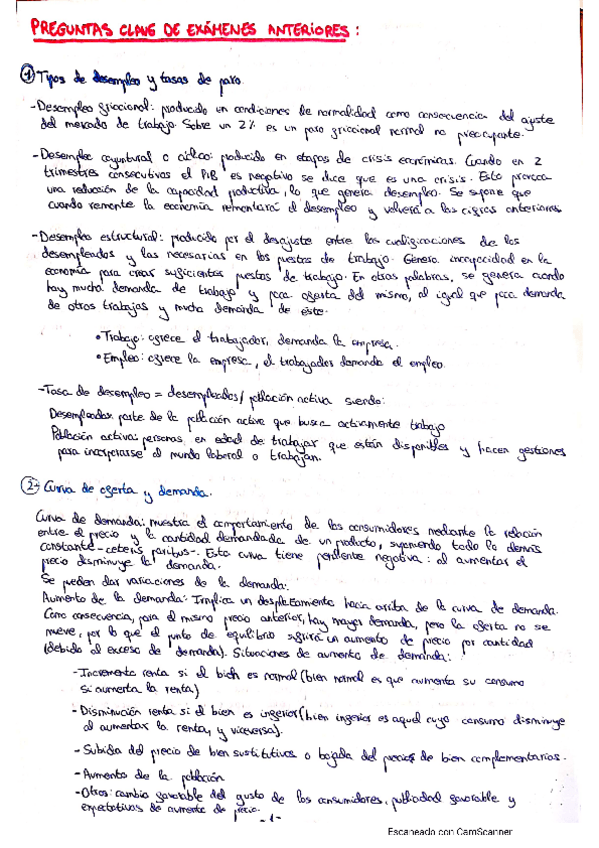 PREGUNTAS CLAVE DE EXÁMENES ANTERIORES:
1 Tipos de desempleo y tasas de paro.
-Desempleo friccional: producido en condiciones de normalidad como consecuencia del ajuste
del mercado de trabajo. Sobre un 2% es un paro friccional normal no preocupante.
-Desempleo coyuntural o cíclico: producido en etapas de crisis económicas. Cuando en 2
trimestres consecutivos el PIB es negativo se dice que es una crisis. Esto provoca
una reducción de la capacidad productiva, lo que genera desempleo. Se supone que
cuando remonte la economía remontará el desempleo y volverá a las cifras anteriores
-Desempleo estructural: producido por el desajuste entre las cualificaciones de los
desempleados y las necesarias en los puestos de trabajo. Genera incapacidad en la
economía para crear suficientes puestos de trabajo. En otras palabras, se genera cuando
hay mucha demanda de trabajo y poca oferta del mismo, al igual que poca demanda
de otros trabajos y mucha demanda de este.
• Trabajo: ofrece el trabajador, demanda la empresa.
• Empleo: ofrece la empresa, el trabajador demanda el empleo.
-Tasa de desempleo = desempleados/población activa siendo:
Desempleados: parte de la población activa que busca activamente trabajo
Población activa: personas en edad de trabajar que están disponibles y hacen gestiones
para incorporarse al mundo laboral o trabajan.
2- Curva de oferta y demanda.
Curva de demanda: muestra el comportamiento de los consumidores mediante la relación
entre el precio y la cantidad demandada de un producto, suponiendo todo lo demás
constante -ceteris paribus-. Esta curva tiene pendiente negativa: al aumentar el
precio disminuye la demanda.
Se pueden dar variaciones de la demanda:
Aumento de la demanda: Implica un desplazamiento hacia arriba de la curva de demanda.
Como consecuencia, para el mismo precio anterior, hay mayor demanda, pero la oferta no se
mueve, por lo que el punto de equilibrio sufrirá un aumento de precio por cantidad
(debido al exceso de demanda). Situaciones de aumento de demanda:
-Incremento renta si el bien es normal (bien normal es que aumenta su consumo
si aumenta la renta)
-Disminución renta si el bien es inferior (bien inferior es aquel cuyo consumo disminuye
al aumentar la renta, y viceversa).
-Subida del precio de bien sustitutivos o bajada del precio de bien complementarios.
-Aumento de la población
-Otros: cambio favorable del gusto de los consumidores, publicidad favorable y
expectativas de aumento de precio.
-1-
Escaneado con CamScanner